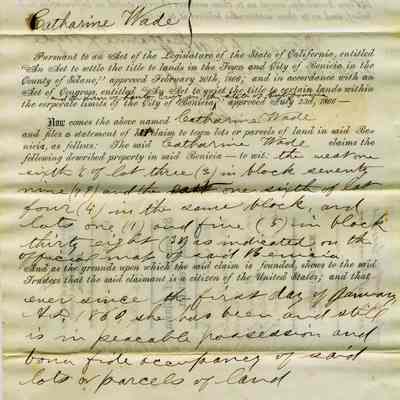 Catharine Wade
Pursuant to an Act of the Legislature of the State of California, entitled
"An Act to settle the title to lands in the Town and City of Benicia in the
County of Solano," approved February 20th, 1866; and in accordance with an
Act of Congress, entitled "An Act to grant the title to certain lands within
the corporate limits of the City of Benicia, approved July 23d, 1866—
Now comes the above named Catharine Wade
and files a statement of her claim to town lots or parcels of land in said Be-
nicia, as follows: The said Catharine Wade claims the
following described property in said Benicia—to wit: the west one
sixth of lot three (3) in block seventy
nine and the east one sixth of lot
four (4) in the same block, and
lots one (1) and five (5) in block
thirty eight (38) as indicated on the
official map of said Benicia
And as the grounds upon which the said claim is founded, shows to the said
Trustees that the said claimant is a citizen of the United States; and that
ever since the first day of January
A.D. 1860 she has been and still
is in peacable possession and
bona fide occupancy of said
lots or parcels of land